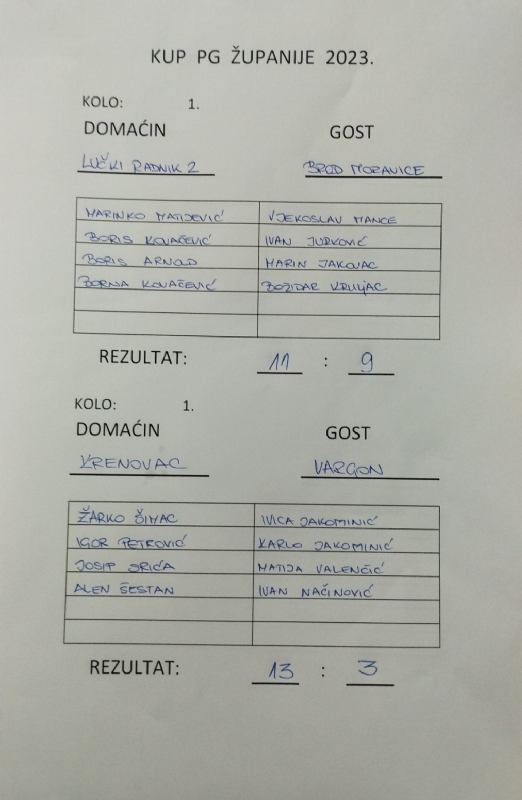 KUP PG ŽUPANIJE 2023.
KOLO: 1.
DOMAĆIN GOST
LUČKI RADNIK 2 BROD MORAVICE
MARINKO MATIJEVIĆ VJEKOSLAV MANCE
BORIS KOVAČEVIĆ IVAN JURKOVIĆ
BORIS ARNOLD MARIN JAKOVAC
BORNA KOVAČEVIĆ BOŽIDAR KRULJAC
REZULTAT: 11 : 9
KOLO: 1.
DOMAĆIN GOST
KRENOVAC VARGON
ŽARKO ŠIMAC IVICA JAKOMINIĆ
IGOR PETROVIĆ KARLO JAKOMINIĆ
JOSIP MATIJA VALENČIĆ
ALEN ŠESTAN IVAN NAČINOVIĆ
REZULTAT: 13 : 3